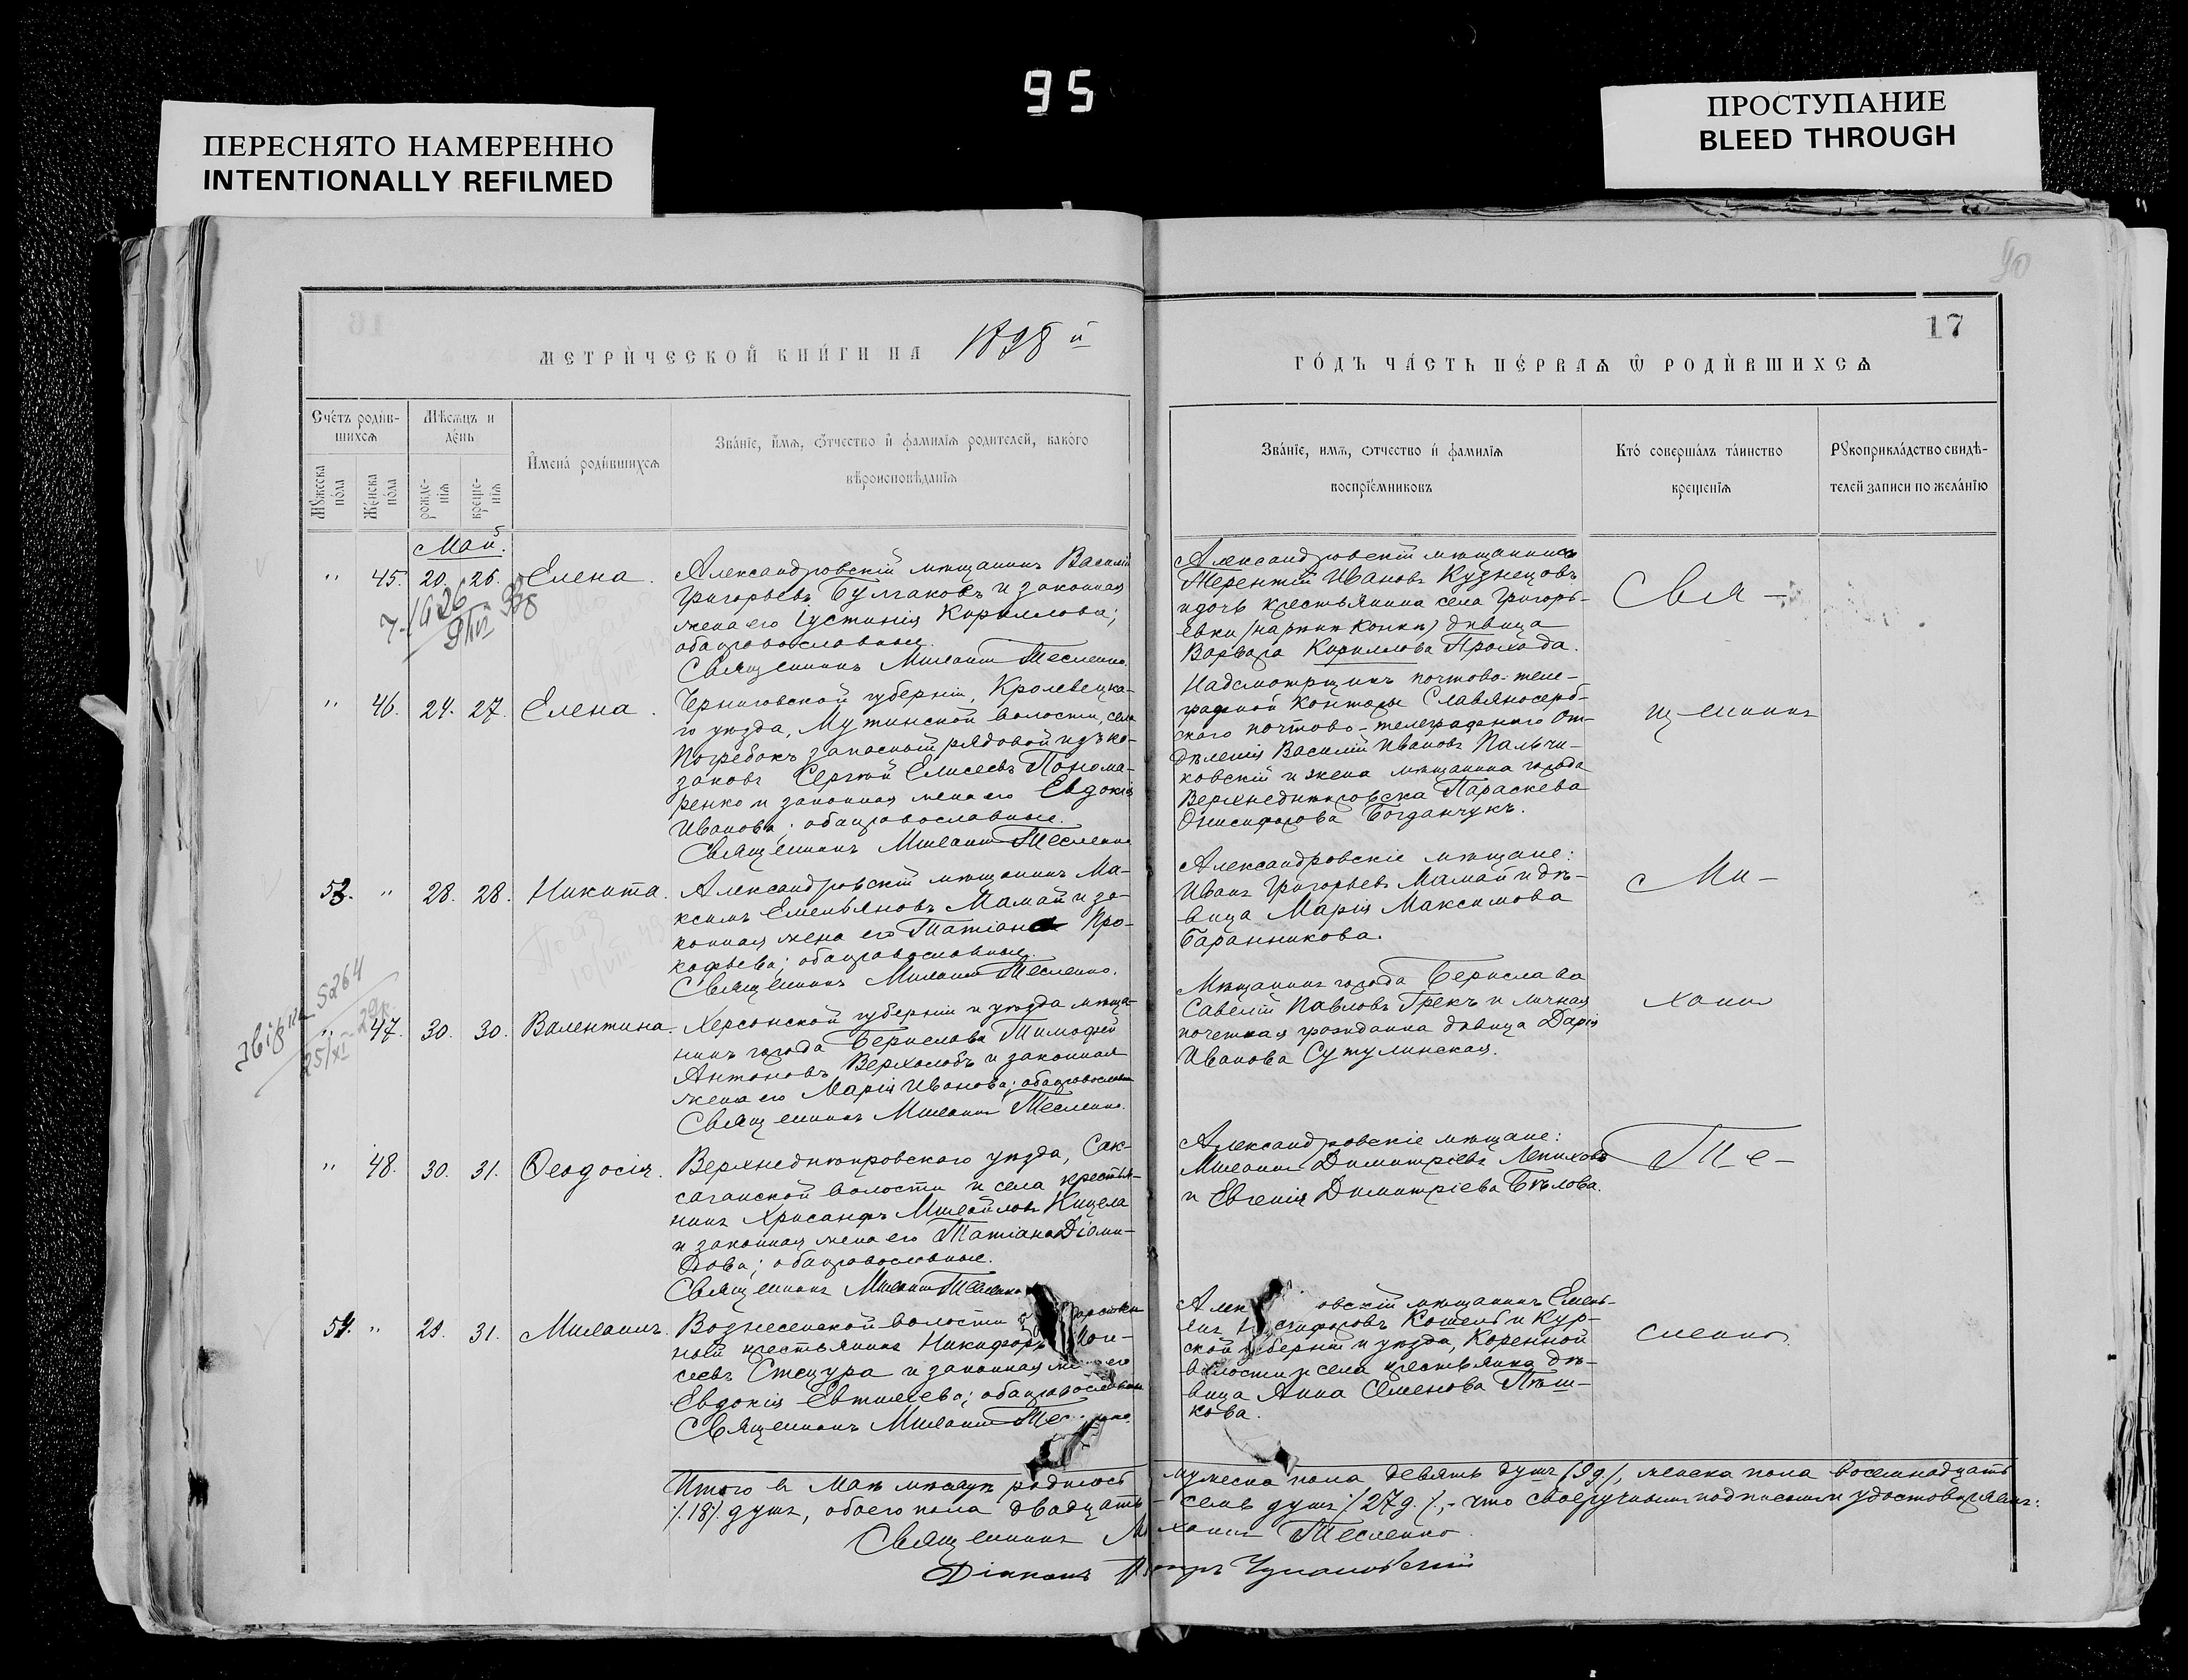 95
ПЕРЕСНЯТО НАМЕРЕННО
INTENTIONALLY REFILMED
ПРОСТУПАНИЕ
BLEED THROUGH
90
17
МЕТРИ́ЧЕСКОЙ КНИ́ГИ НА 1898 й
ГО́ДЪ ЧА́СТЬ ПЕ́РВАѦ Ѿ РОДИ́ВШИХСѦ
Сче́тъ роди́в-
шихсѧ
Мѣ́сѧцъ и
де́нь
Мꙋ́жеска
по́ла
Же́нска
по́ла
рожде-
нїѧ
креще-
нїѧ
И҆мена̀ роди́вшихсѧ
Зва́нїе, и҆́мѧ, ѻ҆́тчество и҆ фамилїѧ родителей, како́го
вѣроисповѣ́данїѧ
Зва́нїе, имѧ, ѻтчество и҆ фамилїѧ
воспрїе́мниковъ
Кто̀ соверша́лъ та́инство
креще́нїѧ
Рꙋкоприкла́дство свидѣ́-
телей записи по жела́нїю
Май.
" 45. 20. 26. Елена.
Александровскій мѣщанинъ Василій
Григорьевъ Булгаковъ и законная
жена его Іустинія Кириллова;
оба православные.
Священникъ Михаилъ Тесленко.
Александровскій мѣщанинъ
Терентій Ивановъ Кузнецовъ
и дочь крестьянина села Григорь-
евки дѣвица
Варвара Кириллова Прохода.
Свя-
" 46. 24. 27. Елена.
Черниговской губерніи, Кролевецка-
го уѣзда, Мутинской волости, села
Погребокъ запасный рядовой изъ ко-
заковъ Сергѣй Елисеевъ Понома-
ренко и законная жена его Евдокія
Иванова; оба православные.
Священникъ Михаилъ Тесленко
Надсмотрщикъ почтово-теле-
графной конторы Славяносерб-
скаго почтово-телеграфнаго от-
дѣленія Василій Ивановъ Пальчи-
ковскій и жена мѣщанина города
Верхнеднѣпровска Параскева
Онисифорова Богданчукъ.
щенникъ
53. " 28. 28. Никита.
Александровскій мѣщанинъ Ма-
ксимъ Емельяновъ Мамай и за-
конная жена его Татіана Про-
кофьева; оба православные.
Священникъ Михаилъ Тесленко.
Александровскіе мѣщане:
Иванъ Григорьевъ Мамай и дѣ-
вица Марія Максимова
Баранникова.
Ми-
" 47. 30. 30. Валентина.
Херсонской губерніи и уѣзда мѣща-
нинъ города Берислава Тимофей
Антоновъ Верхолобъ и законная
жена его Марія Иванова; оба православные
Священникъ Михаилъ Тесленко.
Мѣщанинъ города Берислава
Савелій Павловъ Грекъ и личная
почетная гражданка дѣвица Дарія
Иванова Сутулинская.
хаилъ
" 48. 30. 31. Ѳеодосія.
Верхнеднѣпровскаго уѣзда, Сак-
саганской волости и села крестья-
нинъ Хрисанфъ Михайловъ Кицела
и законная жена его Татіана Діоми-
дова; оба православные.
Священникъ Михаилъ Тесленко
Александровскіе мѣщане:
Михаилъ Димитріевъ Лепиховъ
и Евгенія Димитріева Бѣлова.
Те-
54. " 29. 31. Михаилъ.
Вознесенской волости
ный крестьянинъ Никифоръ
сеевъ Стецура и законная жена его
Евдокія Евтихіева; оба православные
Священникъ Михаилъ Тесленко.
Александровскій мѣщанинъ Емель-
янъ Кошель и Кур-
ской губерніи и уѣзда, Коренной
волости и села крестьянка дѣ-
вица Анна Семенова Пѣш-
кова.
сленко.
Итого въ Маѣ мѣсяцѣ родилось мужеска пола девять душъ /9 д./, женска пола восемнадцать
/.18/. душъ, обоего пола двадцать-семь душъ /27 д./,- что своеручнымъ подписомъ удостовѣряемъ:
Священникъ Михаилъ Тесленко.
Діаконъ Петръ